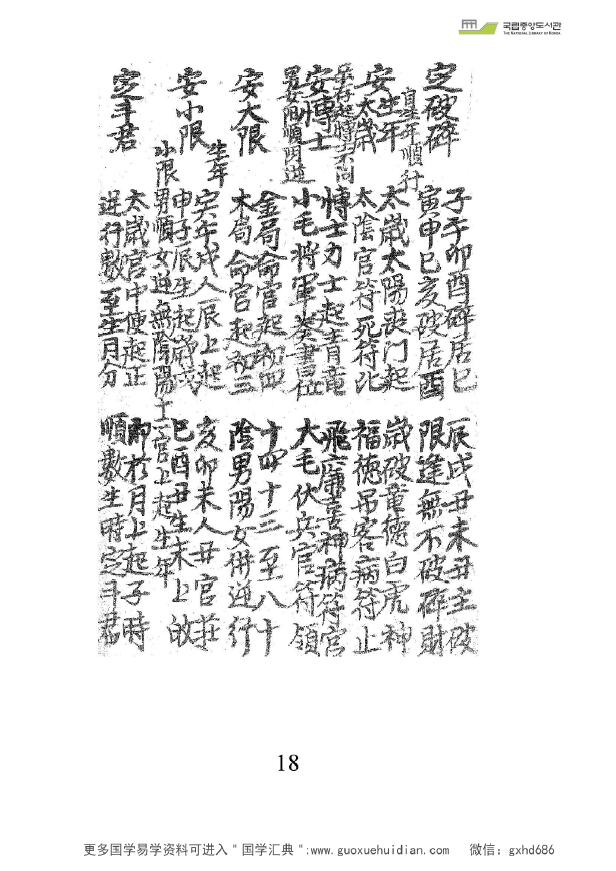 국립중앙도서관
THE NATIONAL LIBRARY OF KOREA
定破碎
子午卯酉碎居巳 辰戌丑未丑主破
寅申巳亥破居酉 限逢無不破碎財
自生年順行
安生年太歲
太歲太陽喪門起 歲破竜德白虎神
太陰官符死符 福德吊客病符止
安博士
男女陽順陰逆
博士力士起青竜 飛廉喜神病符宮
小毛將軍奏書位 大毛伏兵官符領
安大限
金局命宮起初四 十四十三至八十
木局命宮起初三 陰男陽女併逆行
安小限
生年
寅午戌人辰上起 亥卯未人丑宮莊
申子辰生起戌 巳酉丑生未上
小限男順女逆無陰陽 一宮上起生年
定斗君
太歲宮中便起正 即於月上起子時
逆行數至生月分 順數生時定斗君
18
更多国学易学资料可进入＂国学汇典＂:www.guoxuehuidian.com 微信：gxhd686